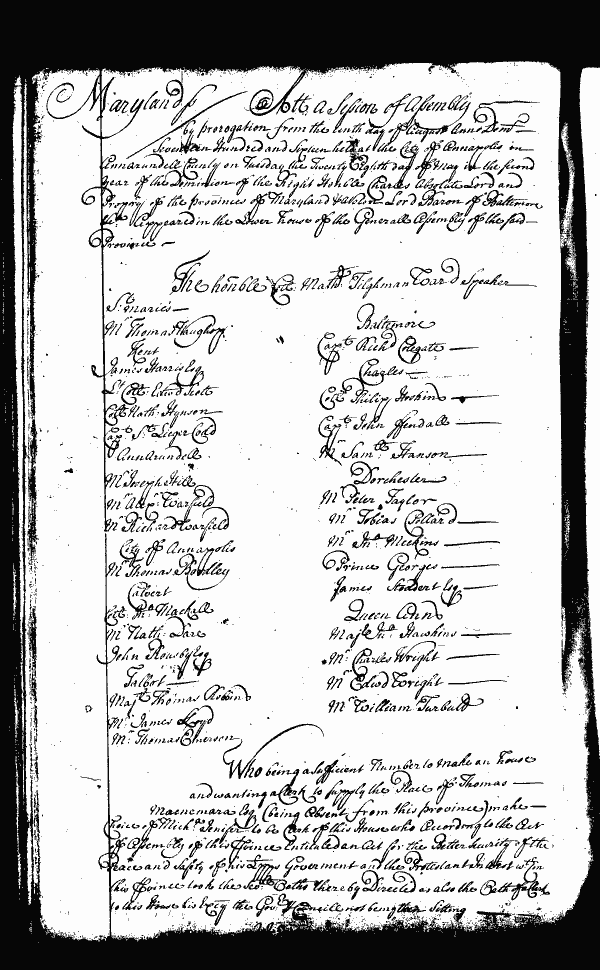 Maryland ss Att a Session of Assembly
by prorogation from the tenth day of August Anno Domi
Seventeen Hundred and Sixteen held at the City of Annapolis in
Annarundell County on Tuesday the Twenty Eighth day of May in the second
year of the Dominion of the Right Honble Charles Absolute Lord and
Propry of the provinces of Maryland & Avalon Lord Baron of Baltemore
&c. Appeared in the Lower house of the Generall Assembly of the said
Province
The honble Coll Math Tilghman Ward Speaker
St maries
Mr Thomas Waughop
Kent
James Harris Esq
Lt Coll Edwd Scott
Coll Nath: Hynson
Capt St Leger Codd
Annarundell
Mr Joseph Hill
Mr Alexr Warfield
Mr Richard Warfield
City off Annapolis
Mr Thomas Bordley
Calvert
Coll Jno Mackall
Mr Nath: Dare
John Rousby Esq
Talbot
Majr Thomas Robins
Mr James Lloyd
Mr Thomas Emerson
Baltimore
Capt Richd Colegate
Charles
Coll Philip Hoskins
Capt John ffendall
Mr Samll Hanson
Dorchester
Mr Peter Taylor
Mr Tobias Pollard
Mr Jno Meekins
Prince Georges
James Stoddert Esq
Queen Anns
Majr Jno Hawkins
Mr Charles Wright
Mr Edwd Wright
Mr William Turbutt
Who being a sufficient Number to make an house
and wanting a Clerk to supply the Place of Thomas
Macnemara Esq (being Absent from this province) make
Choice of Mich: Jenifer to be Clerk of this House who According to the Act
off Assembly of this Province Entituled an Act for the better security of the
Peace and Safety of his Ldpps Goverment and the Protestant Interest wthin
this Province took the Sevll Oaths thereby Directed as also the Oath
to this House his Excy the Govr & Councill not being then Sitting